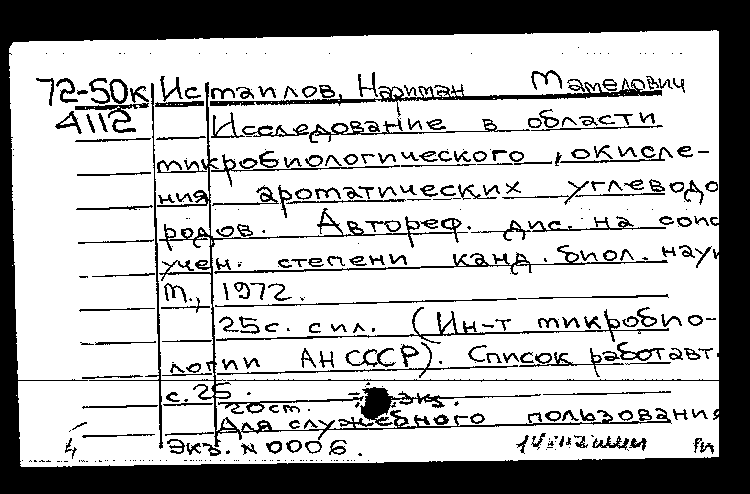 72-50к Исмаилов, Нариман Мамедович
4112 Исследование в области
микробиологического окисле-
ния ароматических углеводо
родов. Автореф. дис. на соис
учен. степени канд. биол. наук
М., 1972.
25с. с ил. (Ин-т микробио-
логии АН СССР). Список работ авт.
с. 25.
20см. экз.
Для служебного пользования
Экз. № 0006.